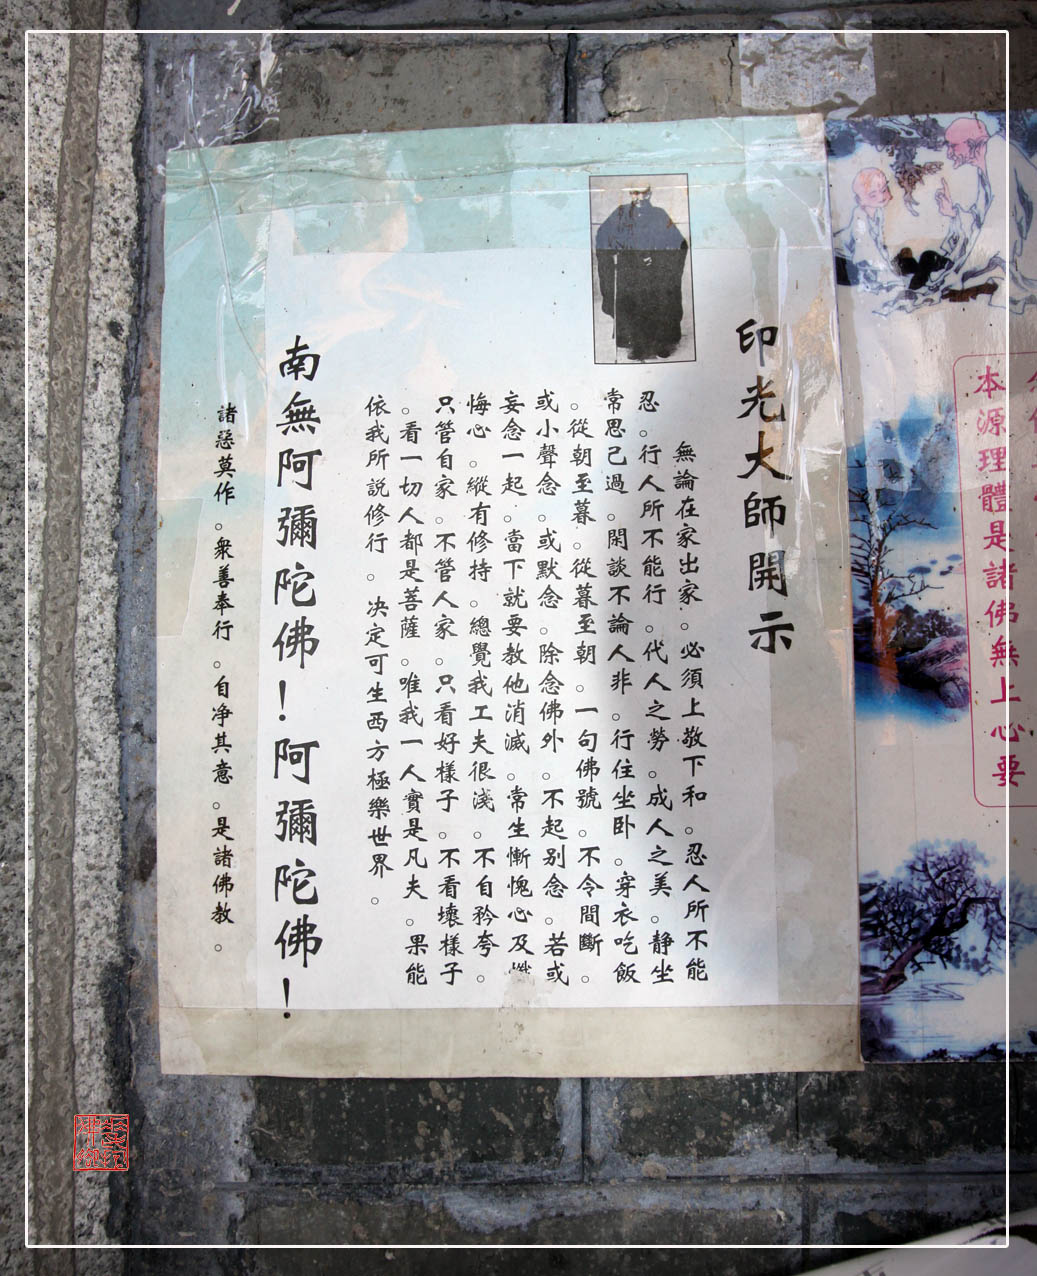 印光大師開示
無論在家出家。必須上敬下和。忍人所不能
忍。行人所不能行。代人之勞。成人之美。靜坐
常思己過。閑談不論人非。行住坐卧。穿衣吃飯
。從朝至暮。從暮至朝。一句佛號。不令間斷。
或小聲念。或默念。除念佛外。不起别念。若或
妄念一起。當下就要教他消滅。常生慚愧心及
悔心。縱有修持。總覺我工夫很淺。不自矜夸。
只管自家。不管人家。只看好樣子。不看壞樣子
。看一切人都是菩薩。唯我一人實是凡夫。果能
依我所説修行。决定可生西方極樂世界。
南無阿彌陀佛！阿彌陀佛！
諸惡莫作。衆善奉行。自净其意。是諸佛教。
本源理體是諸佛無上心要